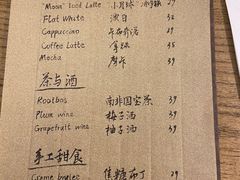 "Moon" Iced Latte
Flat White 澳白 32
Cappuccino 卡布奇诺 29
Coffee Latte 拿铁 29
Mocha 摩卡 35
茶与酒
Rooibos 南非国宝茶 39
Plum wine 梅子酒 39
Grapefruit wine 柚子酒 39
手工甜食
Creme brulee 焦糖布丁 29